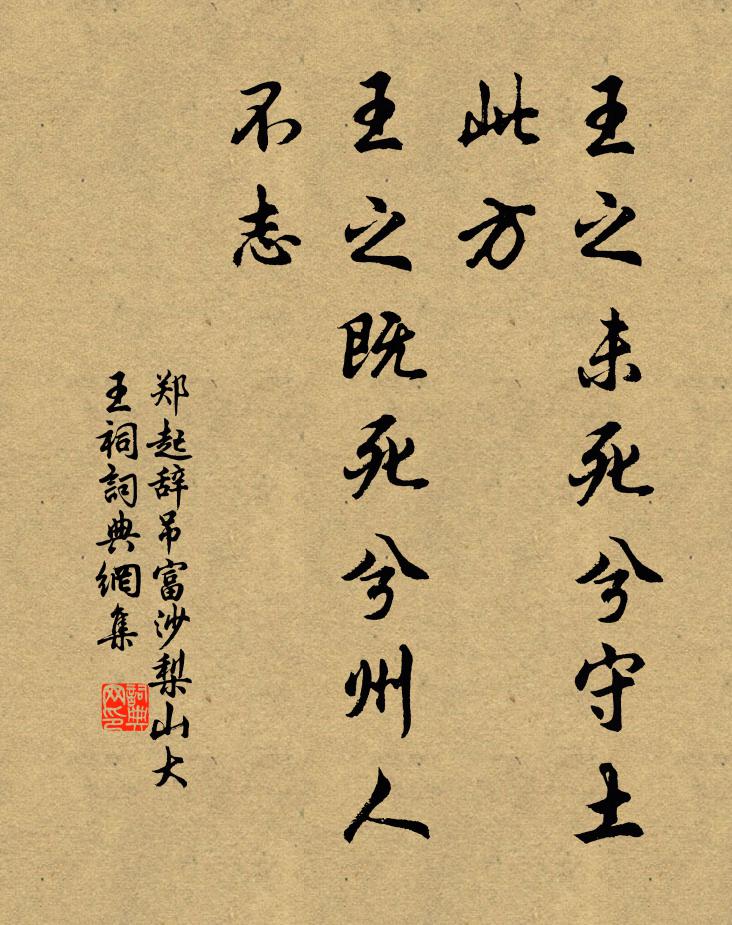 王之未死兮守土
此方
王之既死兮州人
不志
郑起辞吊富沙梨山大
王祠詞典網集
詞典
网印